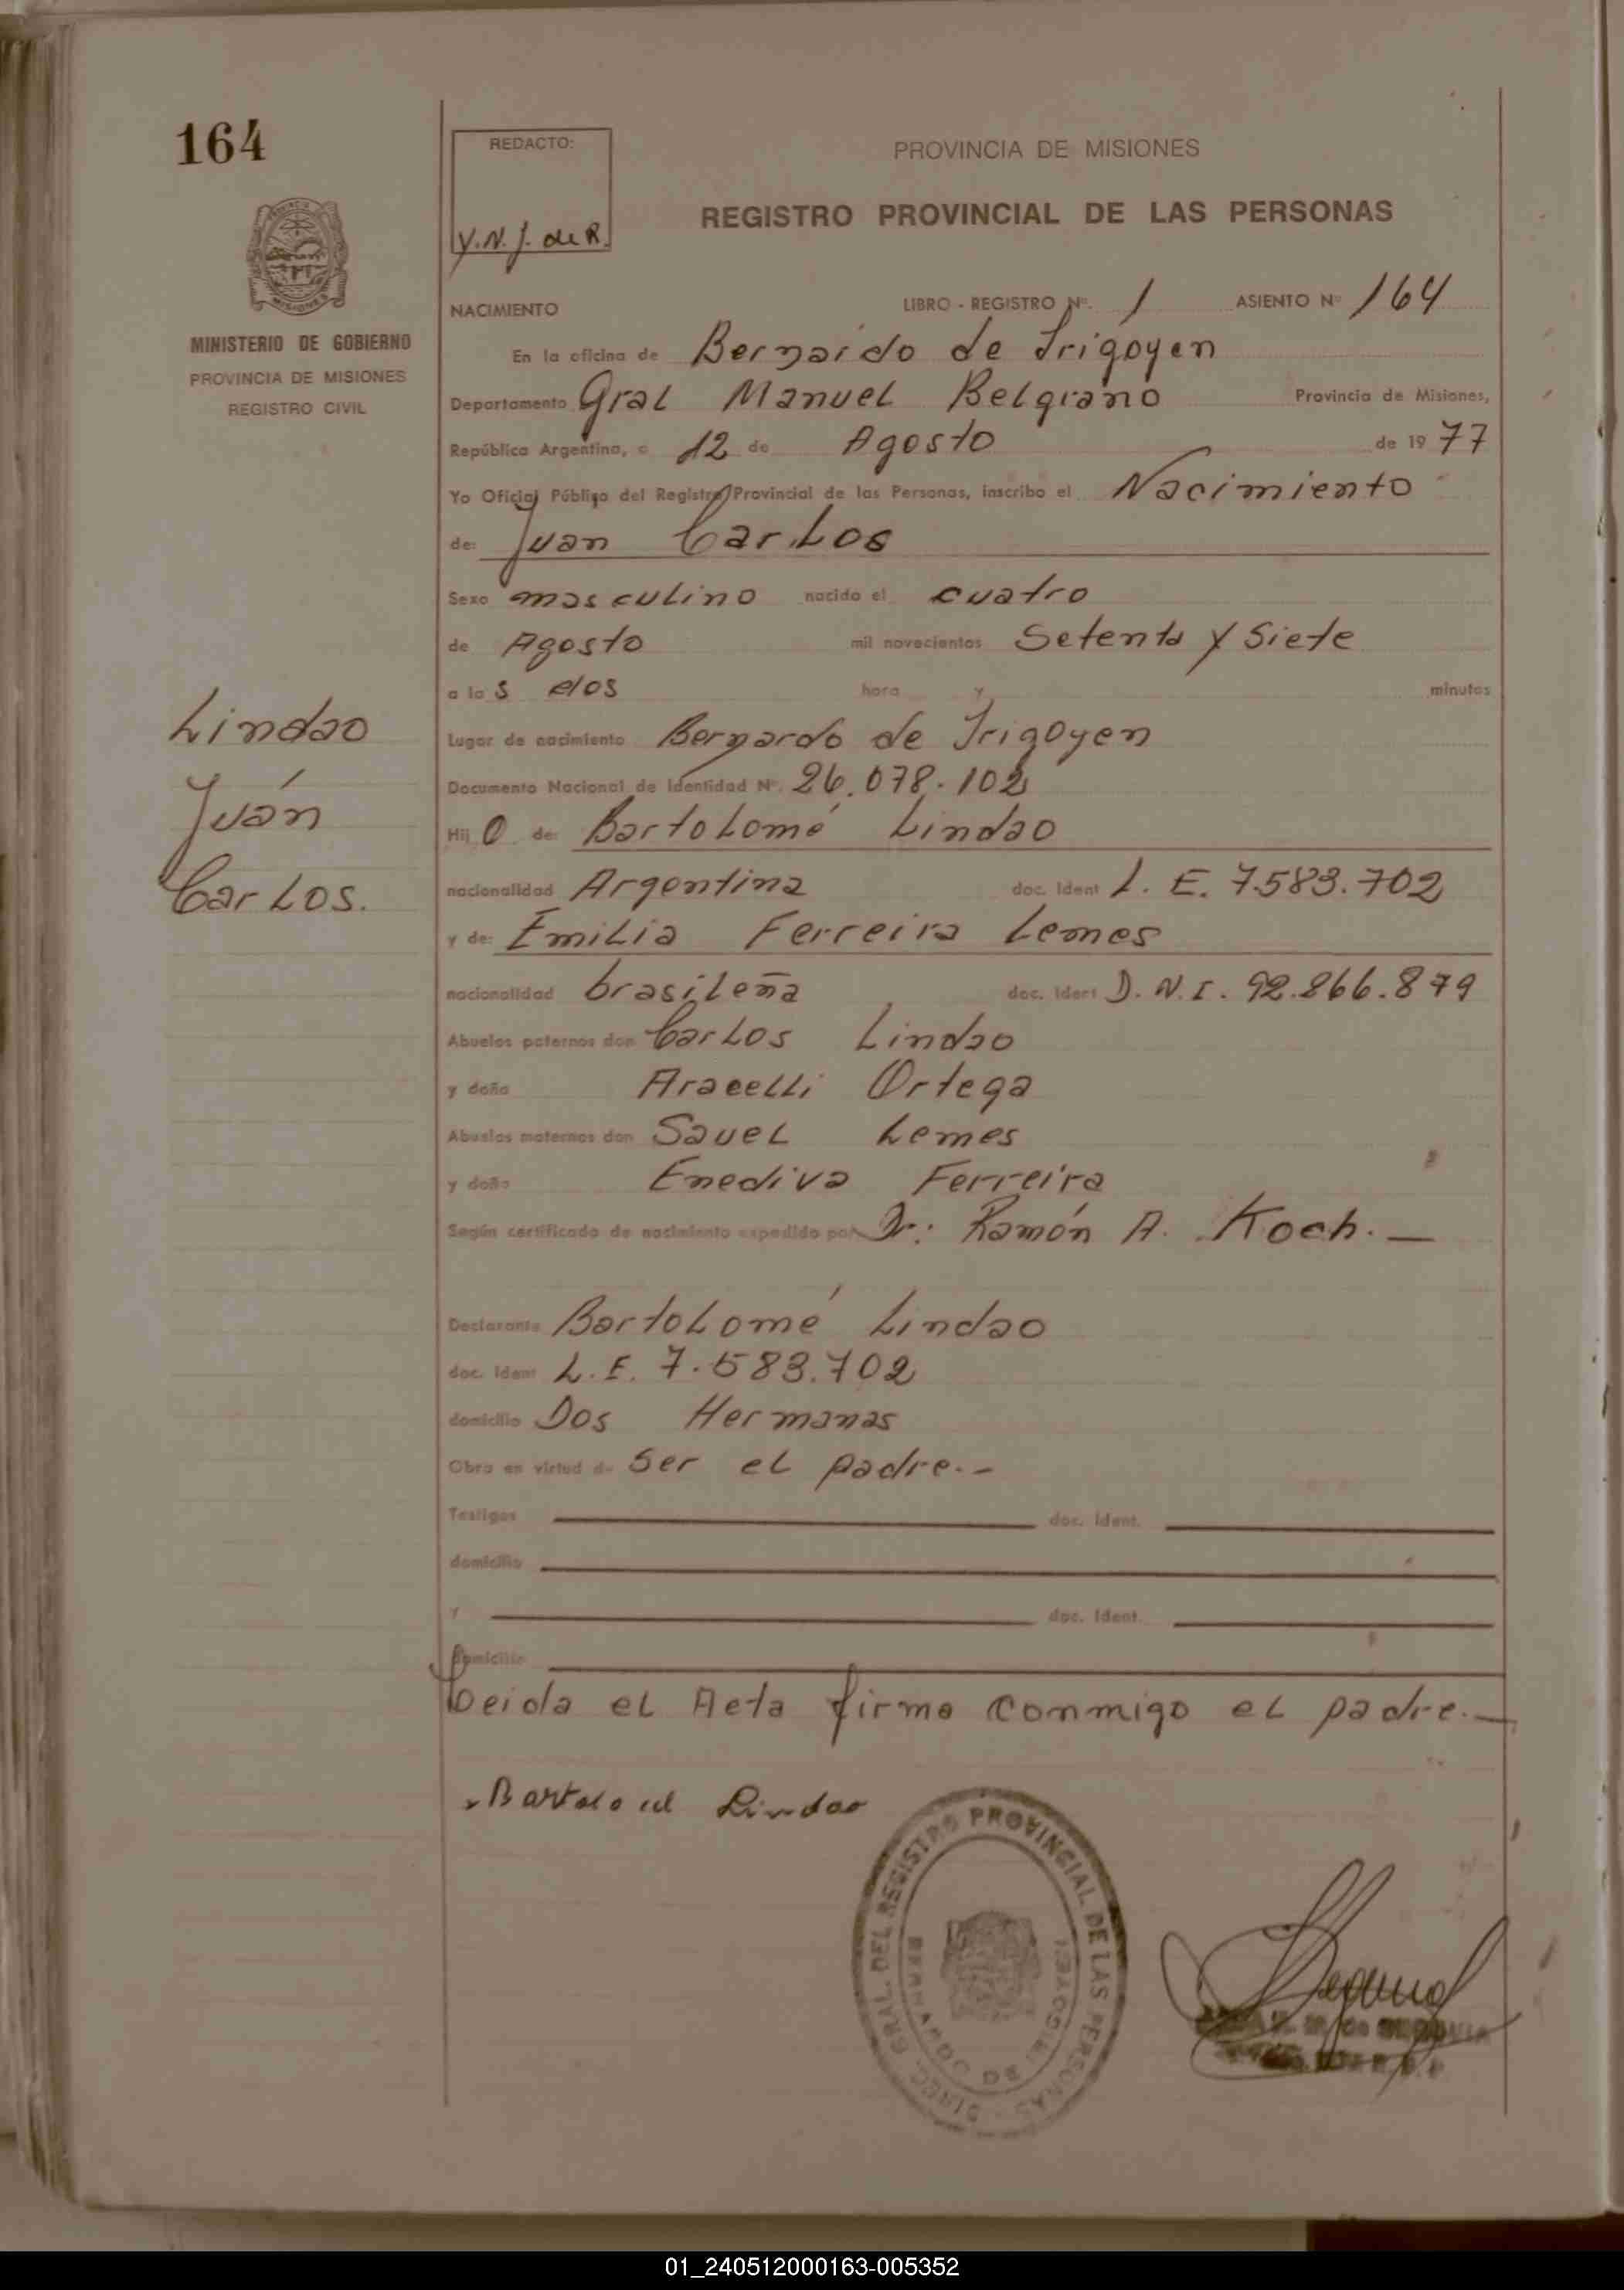 164
REDACTO:
Y.N.J. de R.
PROVINCIA DE MISIONES
REGISTRO PROVINCIAL DE LAS PERSONAS
MINISTERIO DE GOBIERNO
PROVINCIA DE MISIONES
REGISTRO CIVIL
NACIMIENTO LIBRO - REGISTRO Nº. 1 ASIENTO Nº 164
En la oficina de Bernardo de Irigoyen
Departamento Gral Manuel Belgrano Provincia de Misiones,
República Argentina, a 12 de Agosto de 1977
Yo Oficial Público del Registro Provincial de las Personas, inscribo el Nacimiento
de: Juan Carlos
Sexo masculino nacido el cuatro
de Agosto mil novecientos Setenta y Siete
a las dos hora y minutos
Lugar de nacimiento Bernardo de Irigoyen
Documento Nacional de Identidad Nº. 26.078.102
Hijo de: Bartolomé Lindao
nacionalidad Argentina doc. Ident L. E. 7.583.702
y de: Emilia Ferreira Lemes
nacionalidad brasileña doc. Ident D.N.I. 92.866.879
Abuelos paternos don Carlos Lindao
y doña Aracelli Ortega
Abuelos maternos don Sauel Lemes
y doña Enediva Ferreira
Según certificado de nacimiento expedido por Dr: Ramón A. Koch. —
Lindao
Juán
Carlos.
Declarante Bartolomé Lindao
doc. Ident L.E. 7.583.702
domicilio Dos Hermanas
Obra en virtud de Ser el padre.-
Testigos doc. Ident.
domicilio
y doc. Ident.
domicilio
Leida el Acta firma conmigo el padre.—
Lindao
DIREC. GRAL. DEL REGISTRO PROVINCIAL DE LAS PERSONAS
BERNARDO DE IRIGOYEN
01_240512000163-005352